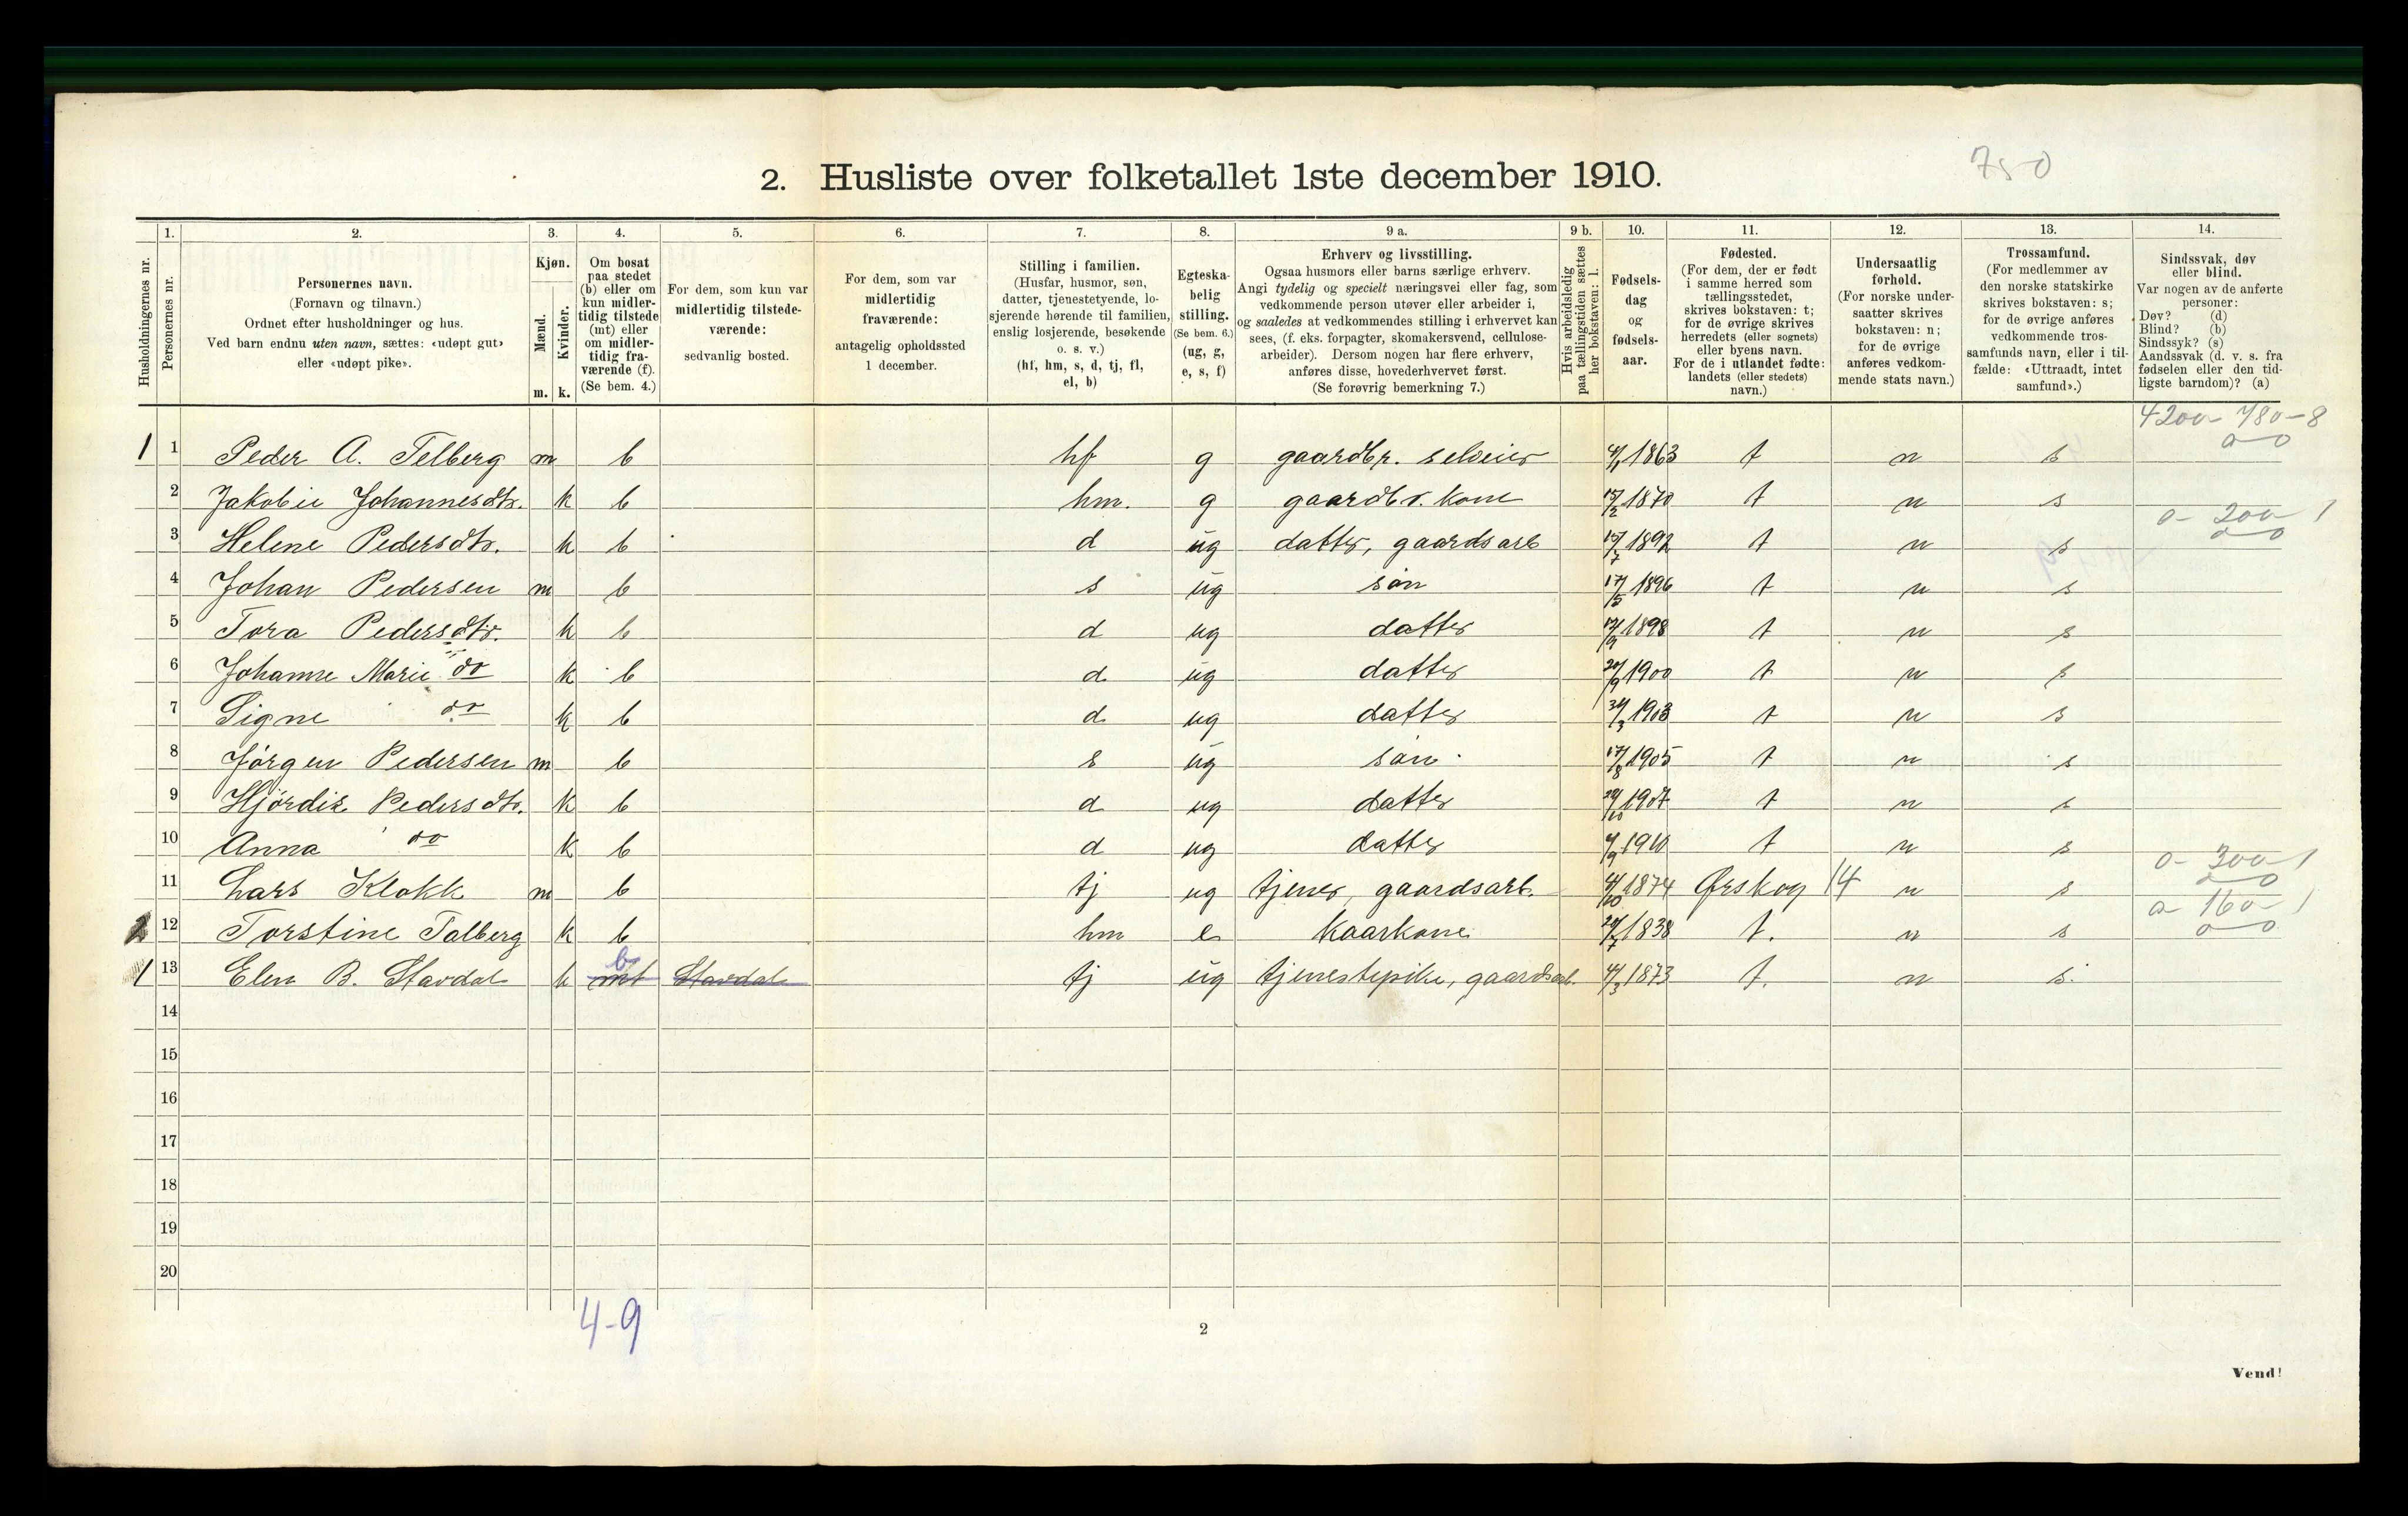 750
2. Husliste over folketallet 1ste december 1910.
Husholdningernes nr.
1.
Personernes nr.
2.
Personernes navn.
(Fornavn og tilnavn.)
Ordnet efter husholdninger og hus.
Ved barn endnu uten navn, sættes: «udøpt gut»
eller «udøpt pike».
3.
Kjøn.
Mænd.
Kvinder.
m. k.
4.
Om bosat
paa stedet
(b) eller om
kun midler-
tidig tilstede
(mt) eller
om midler-
tidig fra-
værende (f).
(Se bem. 4.)
5.
For dem, som kun var
midlertidig tilstede-
værende:
sedvanlig bosted.
6.
For dem, som var
midlertidig
fraværende:
antagelig opholdssted
1 december.
7.
Stilling i familien.
(Husfar, husmor, søn,
datter, tjenestetyende, lo-
sjerende hørende til familien,
enslig losjerende, besøkende
o. s. v.)
(hf, hm, s, d, tj, fl,
el, b)
8.
Egteska-
belig
stilling.
(Se bem. 6.)
(ug, g,
e, s, f)
9 a.
Erhverv og livsstilling.
Ogsaa husmors eller barns særlige erhverv.
Angi tydelig og specielt næringsvei eller fag, som
vedkommende person utøver eller arbeider i,
og saaledes at vedkommendes stilling i erhvervet kan
sees, (f. eks. forpagter, skomakersvend, cellulose-
arbeider). Dersom nogen har flere erhverv,
anføres disse, hovederhvervet først.
(Se forøvrig bemerkning 7.)
9 b.
Hvis arbeidsledig
paa tællingstiden sættes
her bokstaven: l.
10.
Fødsels-
dag
og
fødsels-
aar.
11.
Fødested.
(For dem, der er født
i samme herred som
tællingsstedet,
skrives bokstaven: t;
for de øvrige skrives
herredets (eller sognets)
eller byens navn.
For de i utlandet fødte:
landets (eller stedets)
navn.)
12.
Undersaatlig
forhold.
(For norske under-
saatter skrives
bokstaven: n;
for de øvrige
anføres vedkom-
mende stats navn.)
13.
Trossamfund.
(For medlemmer av
den norske statskirke
skrives bokstaven: s;
for de øvrige anføres
vedkommende tros-
samfunds navn, eller i til-
fælde: «Uttraadt, intet
samfund».)
14.
Sindssvak, døv
eller blind.
Var nogen av de anførte
personer:
Døv? (d)
Blind? (b)
Sindssyk? (s)
Aandssvak (d. v. s. fra
fødselen eller den tid-
ligste barndom)? (a)
4200- 780-8
1 1 Peder A. Telberg m b hf g gaardbr. selveier 4/1 1863 t n s
2 Jakobie Johannesdtr. k b hm. g gaardbr. kone 15/2 1870 t n s
0- 200- 1
3 Helene Pedersdtr. k b d ug datter, gaardsarb 15/7 1892 t n s
4 Johan Pedersen m b s ug søn 17/5 1896 t n s
5 Tora Pedersdtr. k b d ug datter 1898 t n s
6 Johanne Marie do k b d ug datter 20/9 1900 t n s
7 Signe do k b d ug datter 1903 t n s
8 Jørgen Pedersen m b s ug søn 17/8 1905 t n s
9 Hjørdis Pedersdtr. k b d ug datter 29/10 1907 t n s
10 Anna do k b d ug datter 1910 t n s
0- 300- 1
11 Lars Klokk m b tj ug tjener, gaardsarb. 4/10 1874 Ørskog 14 n s
0- 160- 1
2 12 Torstine Talberg k b hm e kaarkone 29/7 1838 t. n s
1 13 Elen B. Stavdal k mt b Stavdal tj ug tjenestepike, gaardsarb. 4/3 1873 t. n s.
14
15
16
17
18
19
20
4-9
2
Vend!